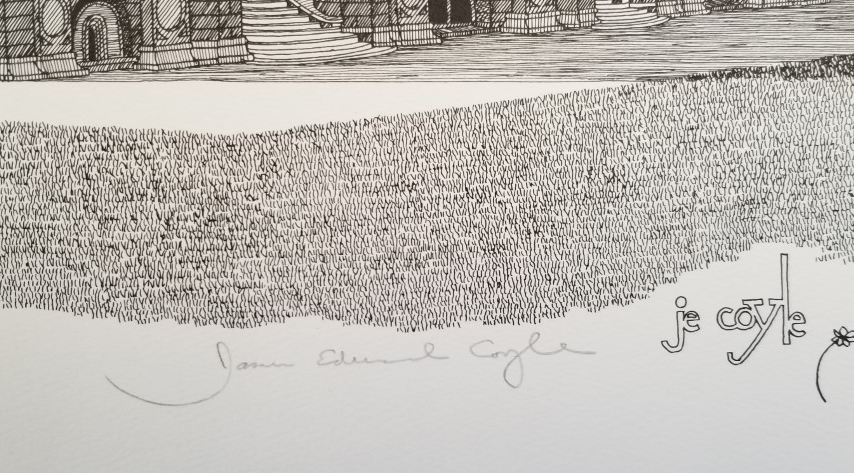 James Edward Coyle
je coyle